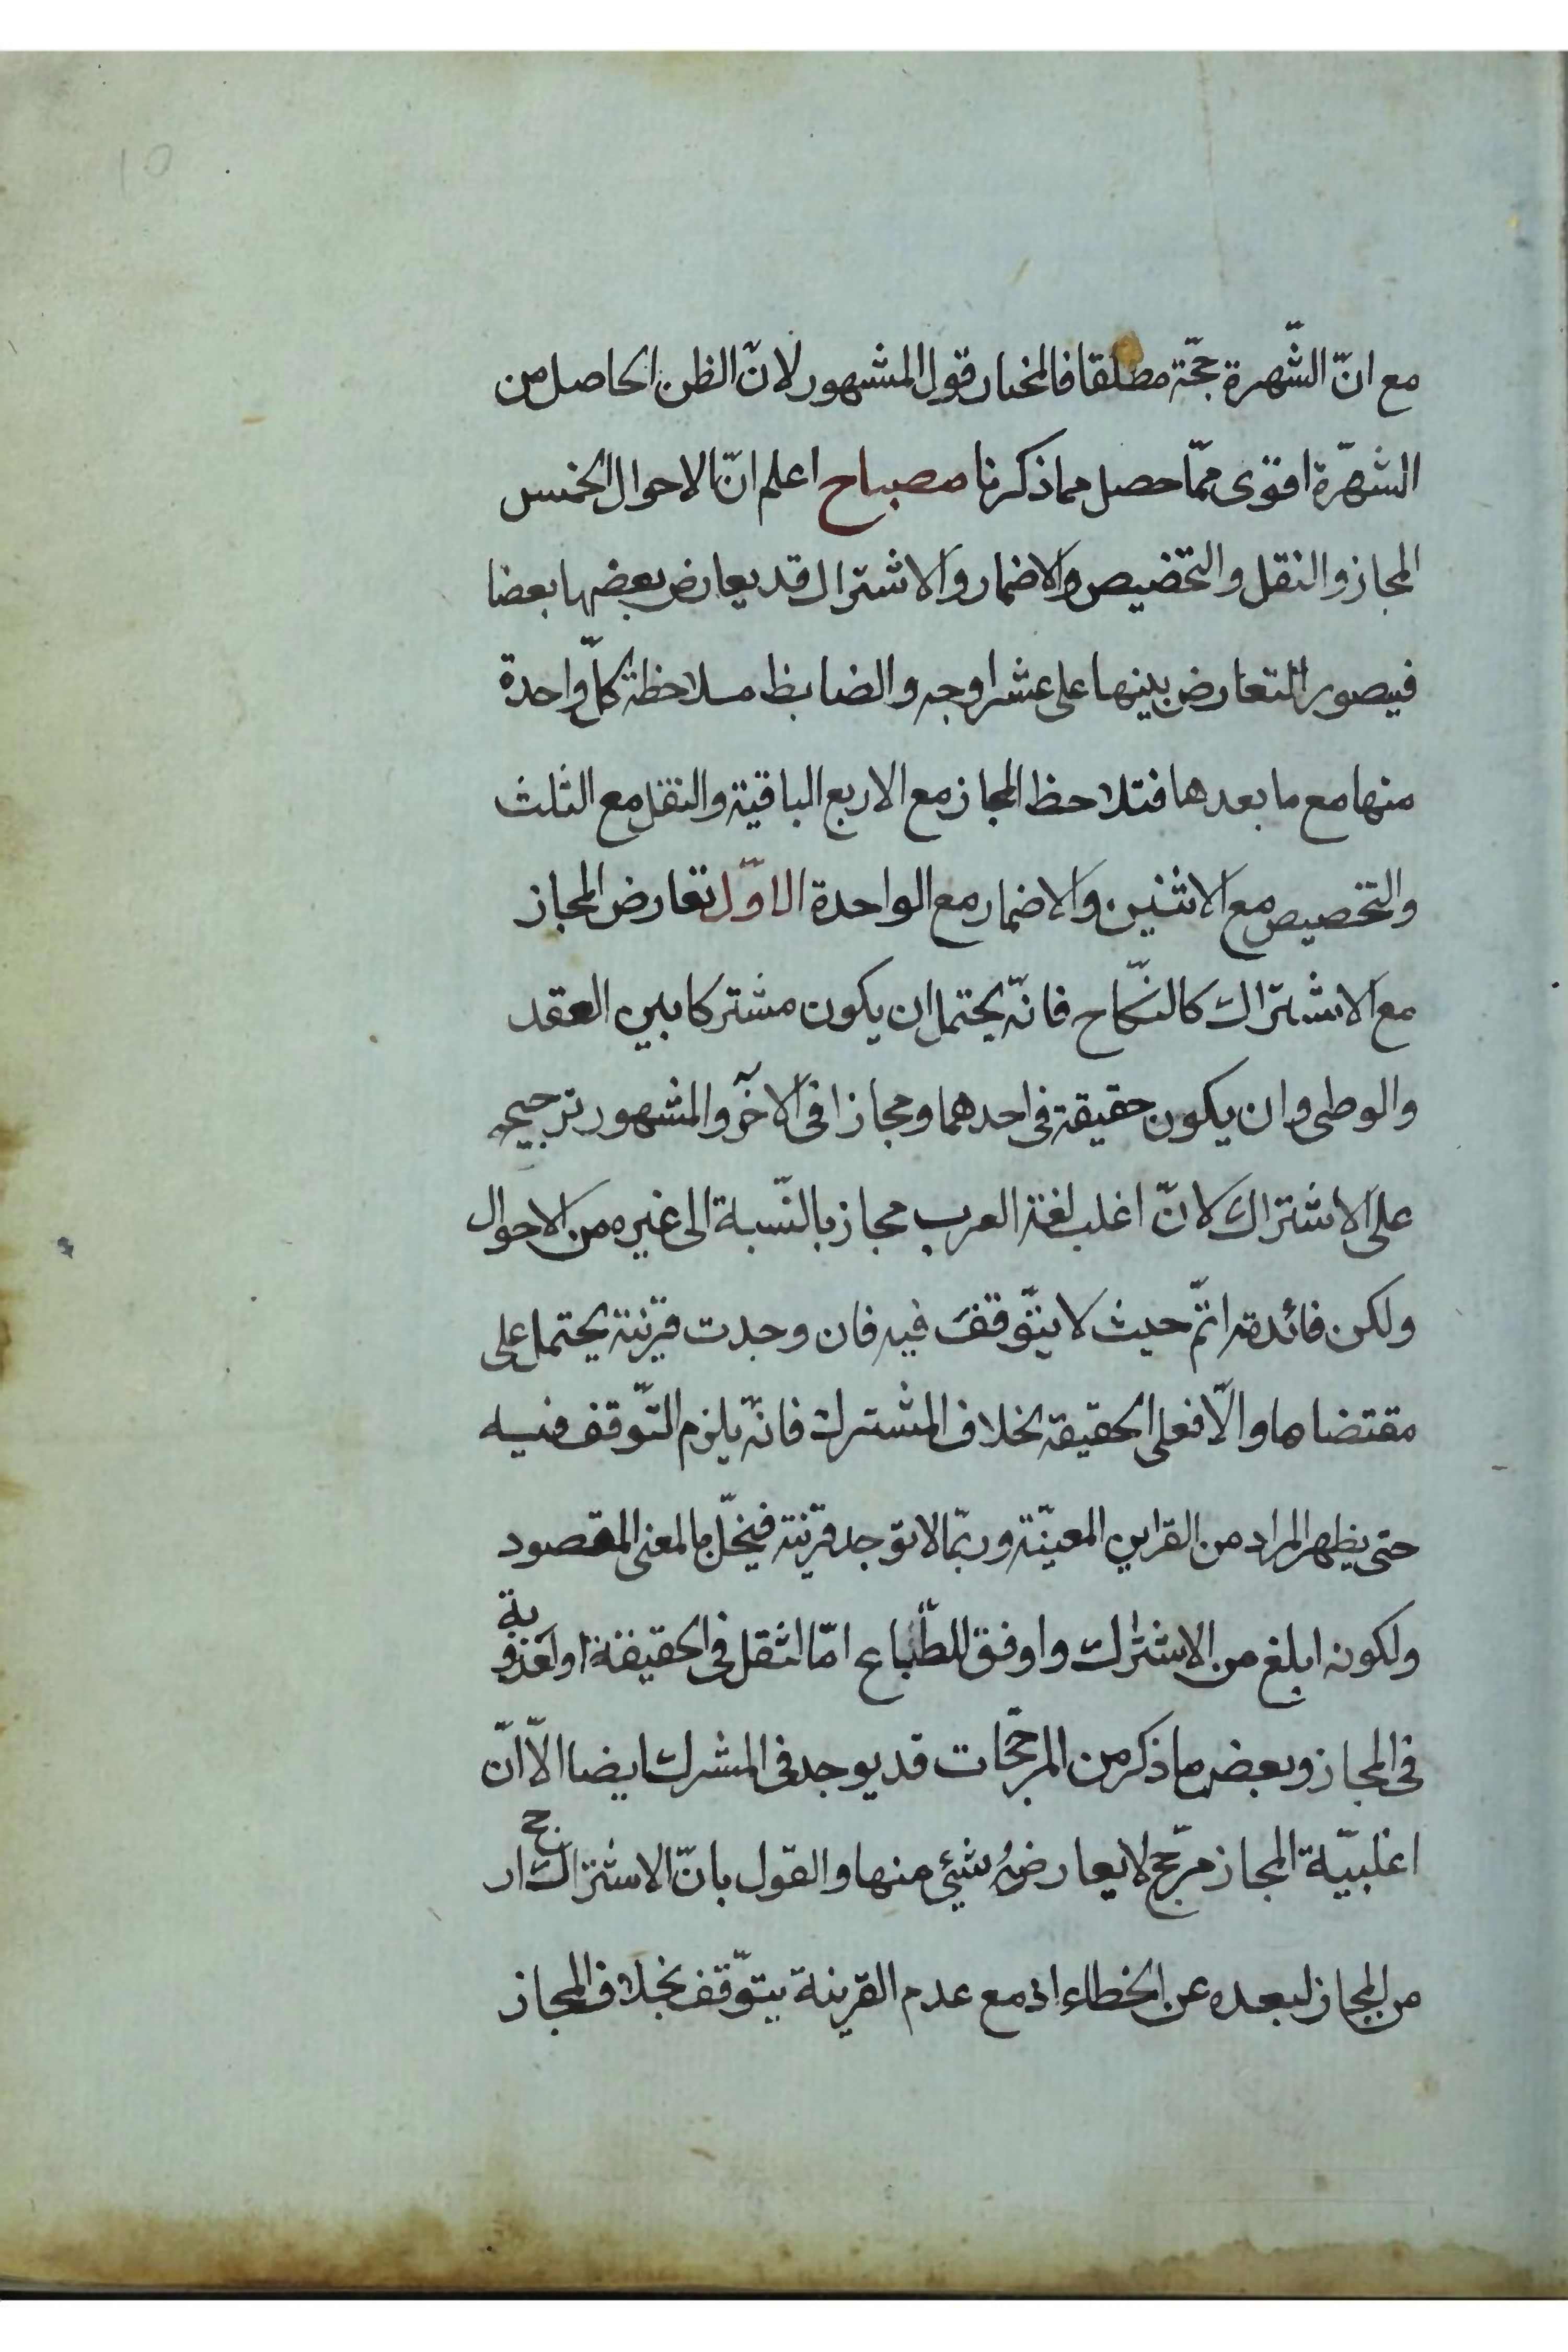 مع انّ الشّهرة حجّة مطلقا فالمختار قول المشهور لانّ الظن الحاصل من
الشهرّة اقوى ممّا حصل مما ذكرنا مصباح اعلم انّ الاحوال الخمس
المجاز والنقل والتخصيص والاضمار والاشتراك قد يعارض بعضها بعضا
فيصور التعارض بينها على عشر اوجه والضابط ملاحظة كلّ واحدة
منها مع ما بعدها فتلاحظ المجاز مع الاربع الباقية والنقل مع الثلث
والتخصيص مع الاثنين والاضمار مع الواحدة الاوّل تعارض المجاز
مع الاشتراك كالنكّاح فانّه يحتمل ان يكون مشتركا بين العقد
والوطى وان يكون حقيقة فى احدهما ومجازا فى الآخر والمشهور ترجيحه
على الاشتراك لانّ اغلب لغة العرب مجاز بالنّسبة الى غيره من الاحوال
ولكن فائدته اتمّ حيث لا يتّوقف فيه فان وجدت قرينة يحتمل على
مقتضاها والّا فعلى الحقيقة بخلاف المشترك فانّه يلزم التّوقف فيه
حتى يظهر المراد من القراين المعيّنة وربّما لا توجد قرينة فيخلّ بالمعنى المقصود
ولكونه ابلغ من الاشتراك واوفق للطّباع امّا لثقل فى الحقيقة او لعذوبة
فى المجاز وبعض ما ذكر من المرجّحات قد يوجد فى المشرك ايضا الّا انّ
اغلبيّة المجاز مرّجح لا يعارضُه شيئى منها والقول بانّ الاشتراك ارجح
من المجاز لبعده عن الخطاء اذ مع عدم القرينة يتّوقف بخلاف المجاز